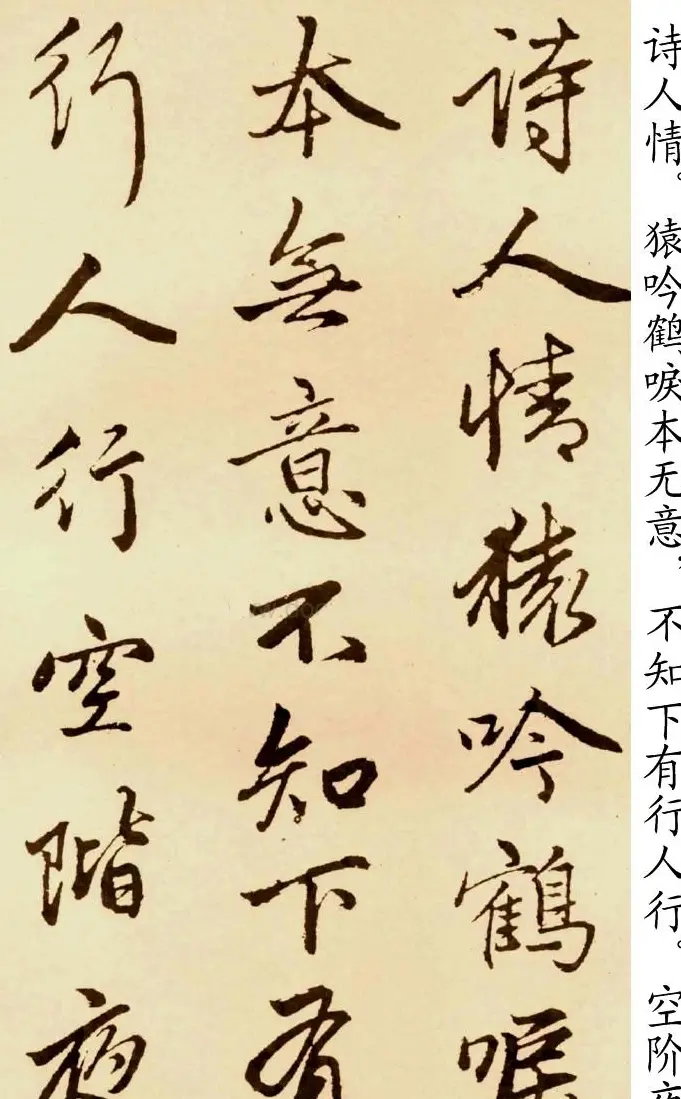 诗人情。猿吟鹤唳本无意，不知下有行人行。空阶夜
詩人情猿吟鶴唳
本無意不知下有
行人行空階夜